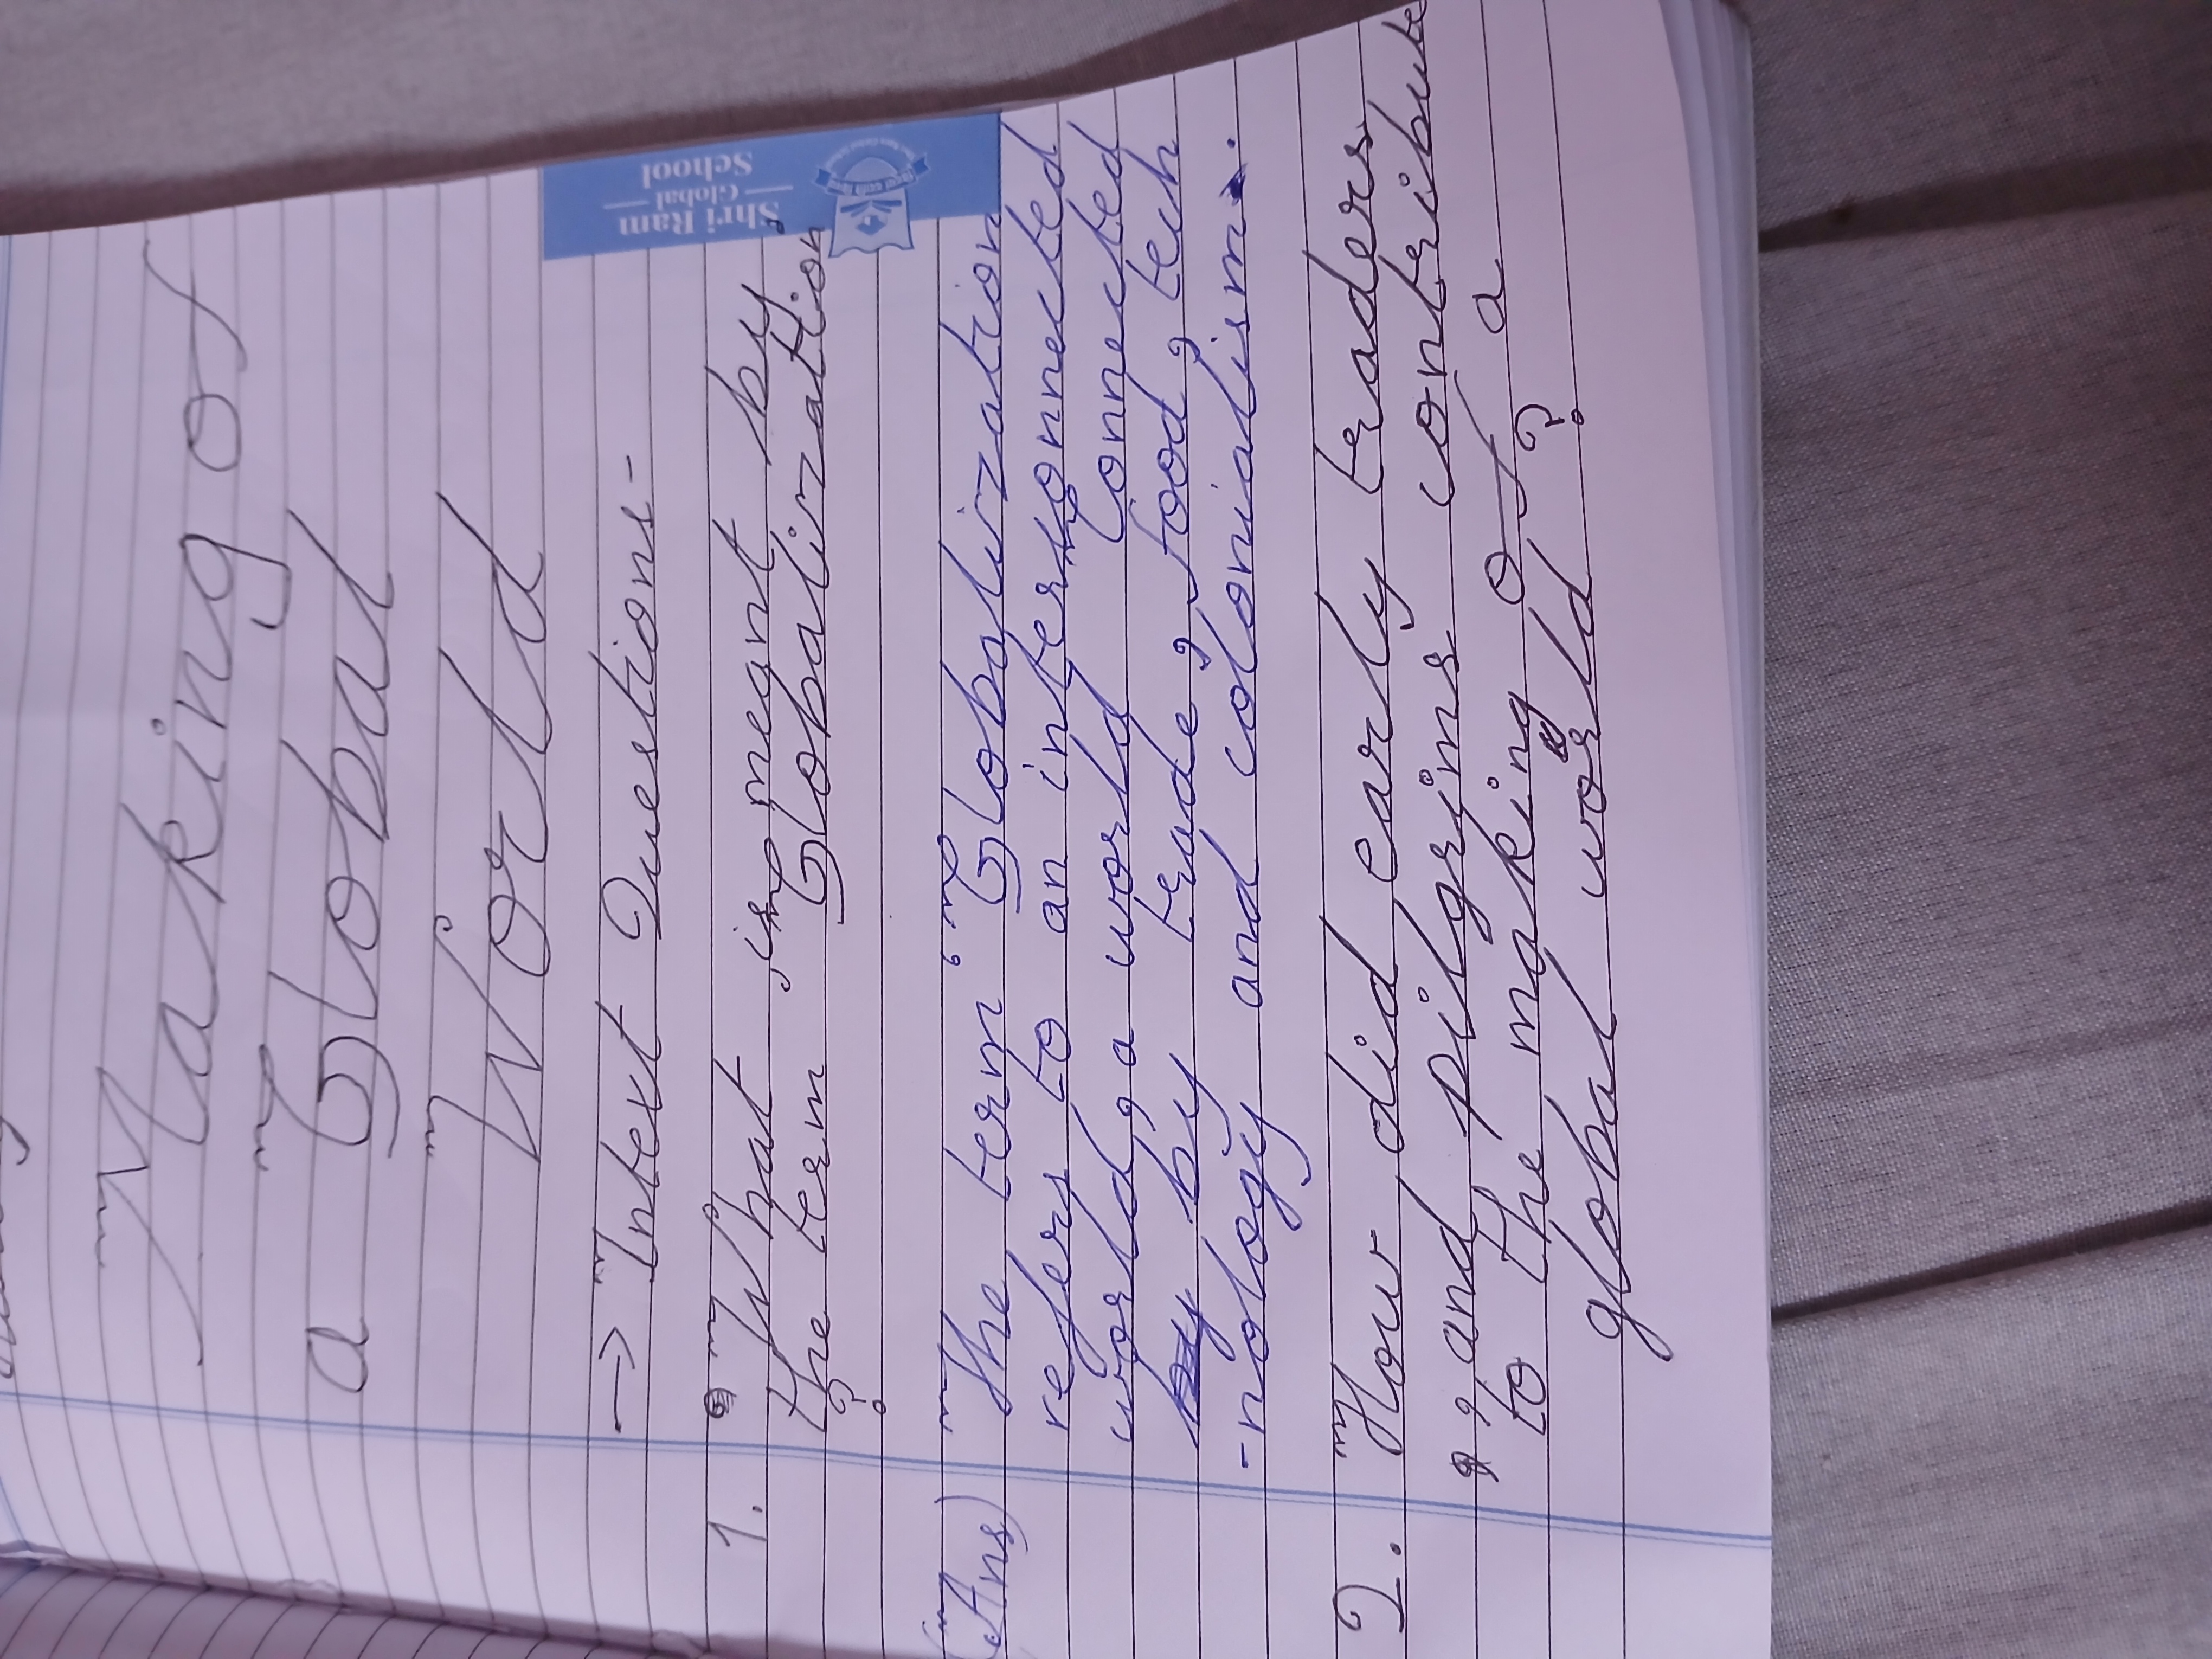 Making of
a Global
World
→ Intext Questions-
1. What is meant by
the term 'Globalization'
?
(Ans) The term 'Globalization'
refers to an interconnected
world, a world connected
by by trade, food, tech
-nology and colonialism.
2. How did early traders
, and pilgrims contribute
to the making of a
global world ?
Shri Ram
Global
School